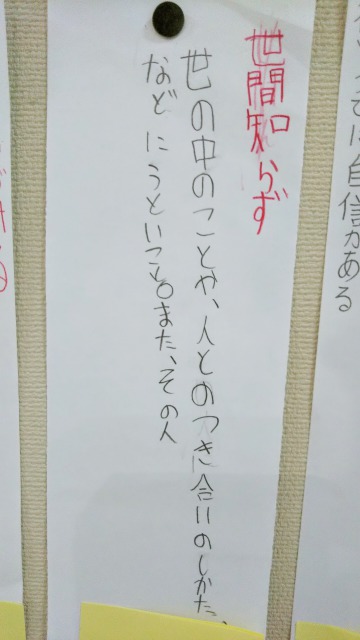 に自信がある
世間知らず
世の中のことや、人とのつき合いのしかた、
などにうといこと。また、その人